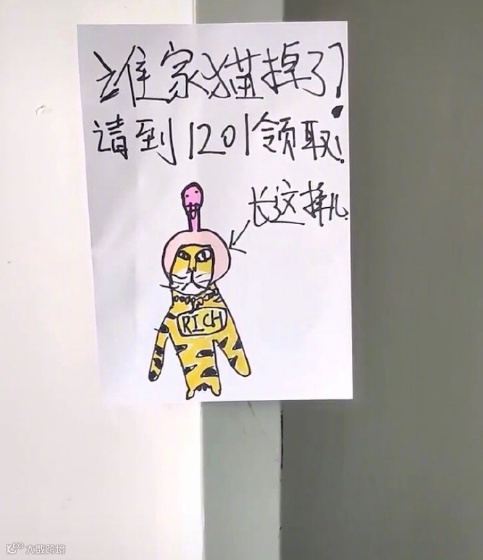 谁家猫掉了?
请到1201领取!
长这样儿
RICH
大数跨境